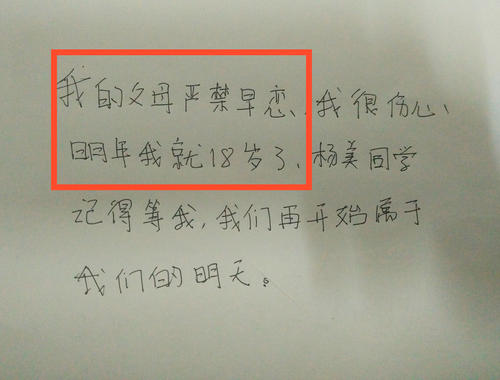 我的父母严禁早恋、我很伤心、
明年我就18岁了、杨美同学
记得等我,我们再开始属于
我们的明天。